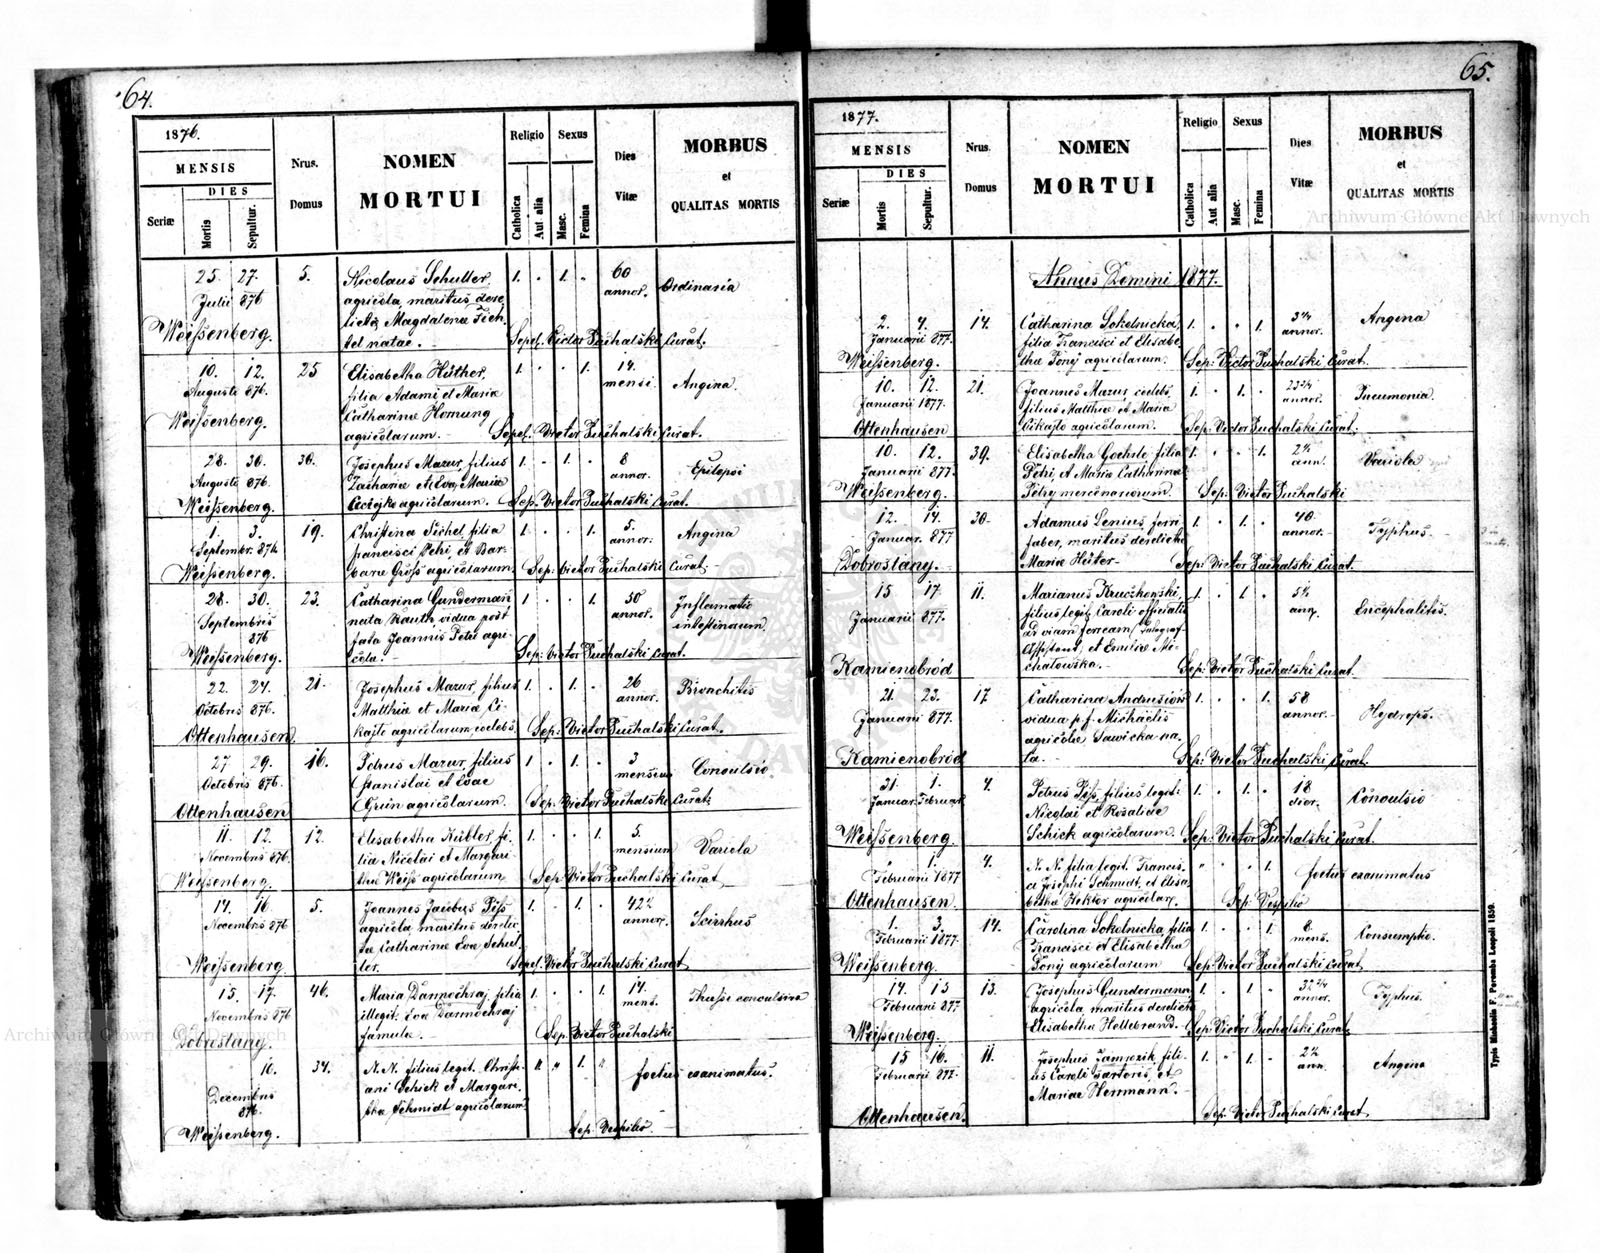 64.
1876.
MENSIS
DIES
Seriæ
Mortis
Sepultur.
Nrus.
Domus
NOMEN
MORTUI
Religio
Catholica
Aut alia
Sexus
Masc.
Femina
Dies
Vitæ
MORBUS
et
QUALITAS MORTIS
25. 27. 5. Nicolaus Schuller, 1. 1. 60 Ordinaria
Julii 876 agricola, maritus dere annor.
lictæ Magdalena Fich
Weißenberg. tel natae. Sepel. Victor Puchalski Curat.
10. 12. 25 Elisabetha Hüther, 1. 1. 14. Angina
Augusti 876. filia Adami et Maria mensi.
Catharina Hornung
Weißenberg. agricolarum. Sepel. Victor Puchalski Curat.
28. 30. 30. Josephus Mazur, filius 1. 1. 8 Epilepsi
Augusti 876. Zacharia et Eva Maria annor.
Weißenberg. agricolarum. Sep. Victor Puchalski Curat.
1. 3. 19. Christina Fichel filia 1. 1. 5. Angina
Septembr. 876 francisci Petri, et Bar- annor.
Weißenberg. bara Groß agricolarum. Sep: Victor Puchalski Curat.
28. 30. 23. Catharina Gunderman 1 1. 50 Inflamatio
Septembris nata Rauth vidua post annor. intestinorum.
876 fata Joannis Petri agri-
Weißenberg. cola. Sep: Victor Puchalski Curat.
22. 24. 21. Josephus Mazur, filius 1. 1. 26 Bronchitis
Octobris 876. Matthia et Maria Ci- annor.
Ottenhausen kajlo agricolarum, coelebs. Sep: Victor Puchalski Curat.
27 29. 16. Petrus Mazur, filius 1. 1. 3 Convulsio.
Octobris 876. Stanislai et Evae mensium
Ottenhausen Grün agricolarum. Sep: Victor Puchalski Curat:
11. 12. 12. Elisabetha Kübler, fi- 1. 1. 5. Variola
Novembris 876. lia Nicolai et Margari- mensium
Weißenberg. tha Weiß agricolarum Sep: Victor Puchalski Curat
14. 16 5. Joannes Jacobus Piß 1. 1. 42 Scirrhus
Novembris 876 agricola, maritus derelic- annor.
ta Catharina Eva Schul-
Weißenberg ler. Sepel. Victor Puchalski Curat
15. 17. 46. Maria Darmochraj, filia 1. 1. 14. Thussi convulsiva
Novembris 876 illegit. Eva Darmochraj mens.
Dobrostany. famula. Sep: Victor Puchalski
16. 34. N. N. filius legit. Christi- 1. foetus exanimatus.
Decembris ani Schick et Margare-
876. tha Schmidt agricolarum
Weißenberg. Sep. Vespilio
65.
1877.
MENSIS
DIES
Seriæ
Mortis
Sepultur.
Nrus.
Domus
NOMEN
MORTUI
Religio
Catholica
Aut alia
Sexus
Masc.
Femina
Dies
Vitæ
MORBUS
et
QUALITAS MORTIS
Annus Domini 1877.
2. 4. 14. Catharina Sokolnicka, 1. 1. annor. Angina
Januarii 877. filia Francisci et Elisabe
Weißenberg. tha Pony agricolarum. Sep: Victor Puchalski Curat.
10. 12. 21. Joannes Mazur, coelebs, 1. 1. annor. Pneumonia.
Januarii 1877. filius Matthia et Maria
Ottenhausen Cikajlo agricolarum. Sep: Victor Puchalski Curat.
10. 12. 39. Elisabetha Goehole filia 1. 1. ann. Variola
Januarii 877. Petri et Maria Catharina
Weißenberg. Petry mercenariorum. Sep: Victor Puchalski
12. 14. 30. Adamus Lenius, ferri 1. 1. 40 Typhus.
Januar. 877 faber, maritus derelicta annor.
Dobrostany. Maria Hüter. Sep: Victor Puchalski Curat.
15 17. 11. Marianus Kruczkowski, 1. 1 Encephalitis.
Januarii 877. filius legit. Caroli officialis
ad viam ferream
Assistent, et Emilia Mi-
Kamienobród chalowska. Sep: Victor Puchalski Curat.
21. 23. 17. Catharina Andrusiow 1. 1. 58 Hydrops.
Januarii 877. vidua p. f. Michaelis annor.
agricola Sawicka na-
Kamienobród ta. Sep: Victor Puchalski Curat.
31. 1. 4. Petrus Piß, filius legit: 1. 1. 18 Convulsio
Januar. Februar. Nicolai et Rosalia dier.
Weißenberg. Schick agricolarum. Sep: Victor Puchalski Curat.
1. 4. N. N. filia legit. Francis- 1. foetus exanimatus
Februarii 1877 ci Josephi Schmidt, et Elisa
Ottenhausen. betha Hektor agricolar. Sep: Vespilio
1. 3. 14. Carolina Sokolnicka, filia 1. 1. 8. Consumptio.
Februarii 1877. Francisci et Elisabetha mens.
Weißenberg. Pony agricolarum Sep: Victor Puchalski Curat
14. 15 13. Josephus Gundermann 1. 1. annor. Typhus.
Februarii 877. agricola, maritus derelicta
Weißenberg. Elisabetha Hellebrand. Sep: Victor Puchalski Curat.
15 16. 11. Josephus Jamrozik fili- 1. 1. ann. Angina
Februarii 877. us Caroli sartoris, et
Mariae Hermann.
Ottenhausen. Sep: Victor Puchalski Curat
Typis Michaelis F. Poremba Leopoli 1859.
Archiwum Główne Akt Dawnych
Archiwum Główne Akt Dawnych